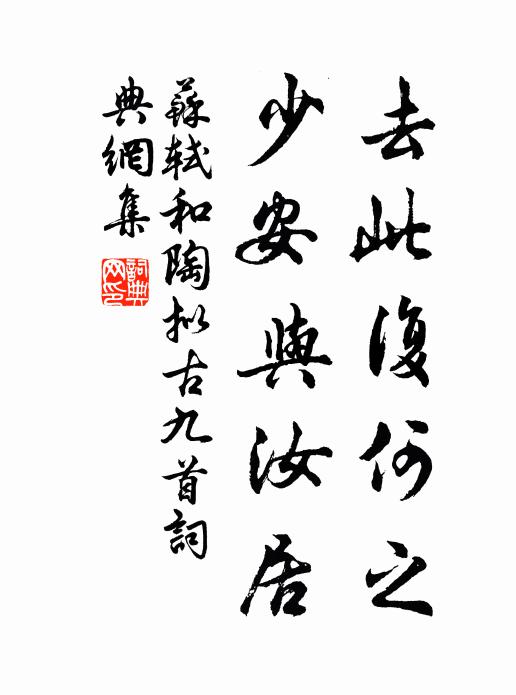 去此復何之
少安與汝居
蘇軾和陶拟古九首詞
典網集
詞典
网印